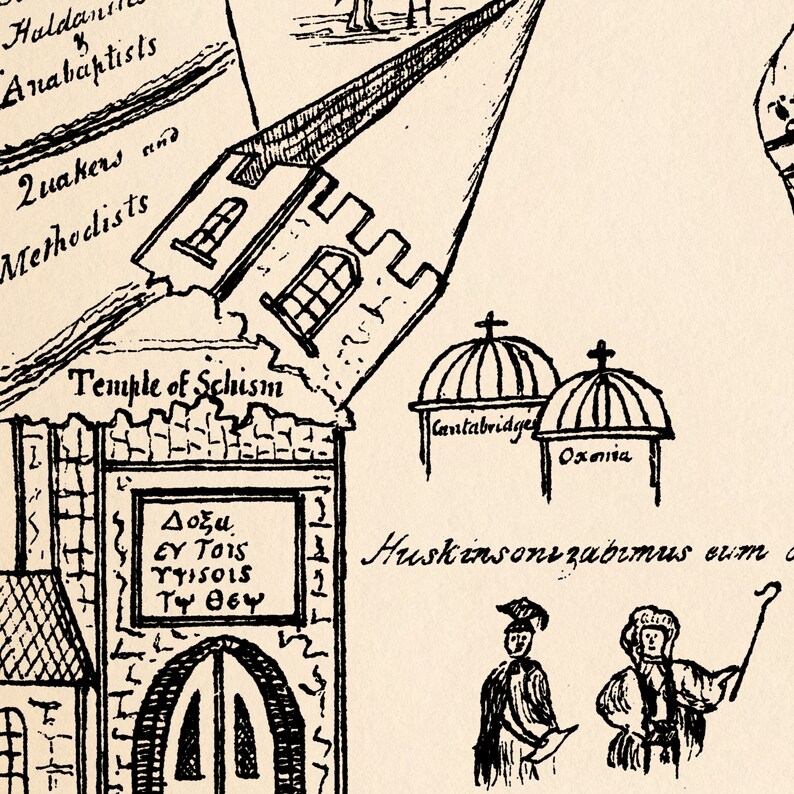 Haldanites
&
Anabaptists
Quakers and
Methodists
Temple of Schism
Cantabridge
Oxonia
Δοξα
εν Τοις
υψισοις
Τῳ Θεῳ
Huskinsonizabimus eum